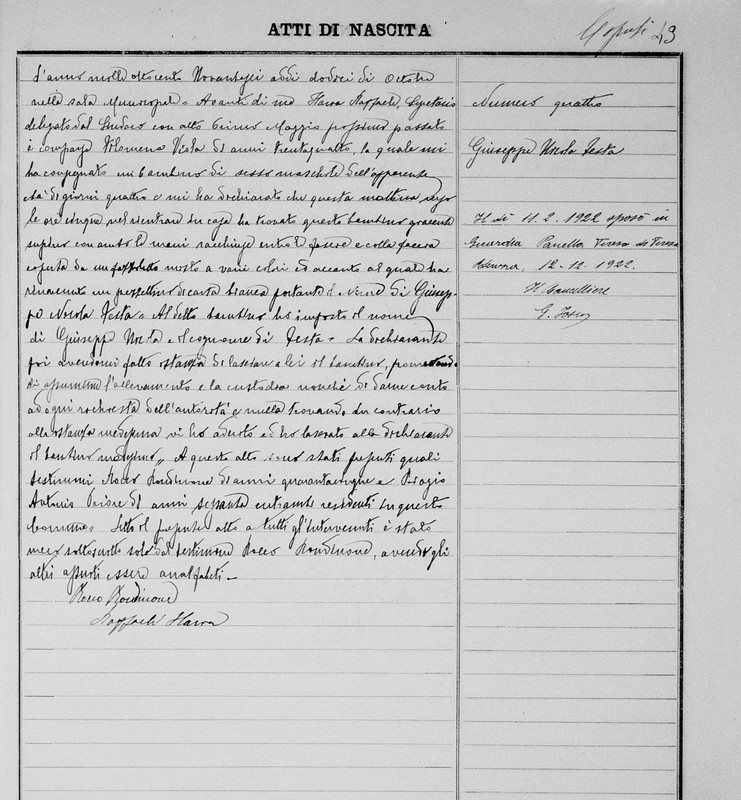 ATTI DI NASCITA
Esposti 43
L'anno mille ottocento Novantasei addì dodici di Ottobre
nella sala Municipale. Avanti di me Raffaele, Segretario
delegato dal Sindaco con atto Primo Maggio prossimo passato
è comparsa Filomena Viola di anni trentaquattro, la quale mi
ha consegnato un bambino di sesso maschile dell'apparente
età di giorni quattro e mi ha dichiarato che questa mattina verso
le ore cinque nel rientrare in casa ha trovato questo bambino giacente
supino con ambo le mani racchiuse entro le fasce e colla faccia
coperta da un fazzoletto misto a varii colori ed accanto al quale ha
rinvenuto un pezzettino di carta bianca portante il Nome di Giusep-
pe Nicola Testa. Al detto bambino ho imposto il nome
di Giuseppe Nicola e il cognome di Testa. La dichiarante
poi avendomi fatto istanza di lasciare a lei il bambino, promettendo
di assumere l'allevamento e la custodia nonchè di darne conto
ad ogni richiesta dell'autorità e nulla trovando in contrario
alla istanza medesima vi ho aderito ed ho lasciato alla dichiarante
il bambino medesimo. A questo atto sono stati presenti quali
testimoni Rocco Rondinone di anni quarantacinque e Biagio
Antonio di anni sessanta entrambi residenti in questo
Comune. Letto il presente atto a tutti gl'intervenuti è stato
meco sottoscritto solo dal testimone Rocco Rondinone, avendo gli
altri assunti essere analfabeti.
Rocco Rondinone
Raffaele
Numero quattro
Giuseppe Nicola Testa
Il dì 11.2.1922 sposò in
Panella Teresa di Teresa
12-12.1922.
Il Cancelliere
G.